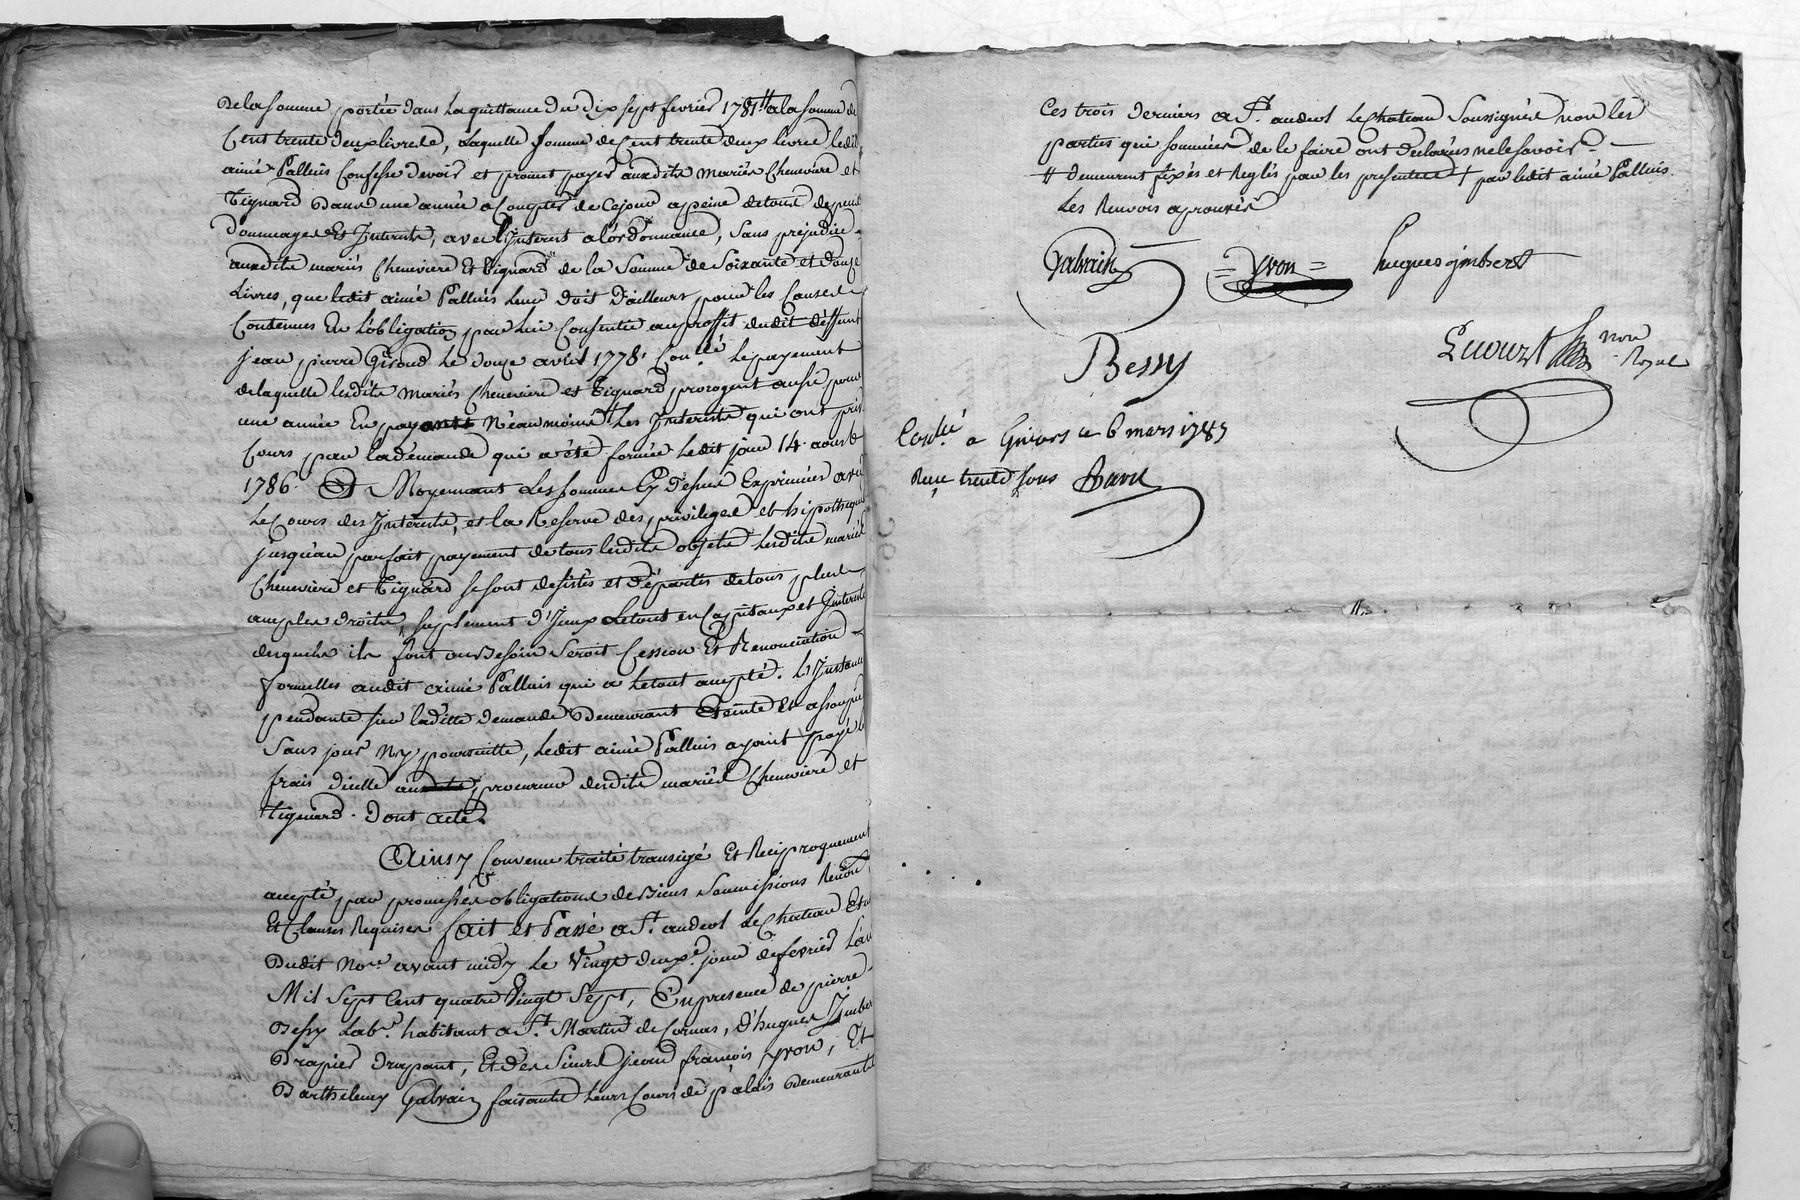 De la somme portée dans la quittance du dix sept fevrier 1781 # a la somme de
Cent trente deux livres, laquelle somme de Cent trente deux livres ledit
aimé Palluis Confesse devoir et promet payer auxdits mariés Chenevière et
Tignard Dans une année a Compter de Cejour a peine detous depend
Dommages Et Interets, avec l'Interet a l'ordonnance, Sans préjudice
auxdits mariés Chenevière Et Tignard de la Somme de Soixante et douze
Livres, que ledit aimé Palluis leur doit d'ailleurs pour les Causes
Contenues En l'obligation par lui Consentie au proffit dudit deffunt
jean pierre Giroud le douze avril 1778. Con.lé le payement
de laquelle lesdits mariés Chenevière et Tignard prorogent aussi pour
une année En payant Néanmoins les Interets qui ont pris
Cours par la demande qui a été formée ledit jour 14 aoust
1786. Et Moyennant les sommes Cy dessus Exprimées avec
le Cours des Interets, et la Reserve des privileges et hipotheques
jusqu'au parfait payement de tous lesdits objets lesdits mariés
Chenevière et Tignard se sont desistés et départis de tous plus
amples droits, suplement d'Iceux le tout en Capitaux et Interets
desquels ils font au Besoin Seroit Cession Et Renonciation
formelles audit aimé Palluis qui a le tout accepté. L'Instance
pendante sur laditte demande Demeurant Eteinte Et assoupie
Sans jour Ny poursuitte, ledit aimé Palluis ayant payé les
frais d'icelle au procureur desdits mariés Chenevière et
Tignard. Dont acte.
Ainsy Convenu traité transigé Et Reciproquement
accepté par promesses obligations de Biens Soumissions Renon.
Et Clauses Requises fait et Passé a St. andeol le Chateau Etude
Dudit No.re avant midy le Vingt deux.e jour de fevrier l'an
Mil Sept Cent quatre Vingt Sept, En presence de pierre
Bessy Lab.r habitant a St. Martin de Cornas, d'hugues Jmbert
Drapier Drapant, Et des Sieurs jean francois yvon, Et
Barthelemy Galvain faisants leurs Cours de palais Demeurants
Ces trois derniers a St. andeol le Chateau Soussignés non les
parties qui sommées de le faire ont declarées ne le savoir.
# demeurent fixés et Reglés par les presentes + par ledit aimé Palluis
Les Renvois aprouvés
Galvain = yvon = hugues jmbert
Bessy
non
Royal
Con.lé a Givors ce 6 mars 1787
Reçu trente sous